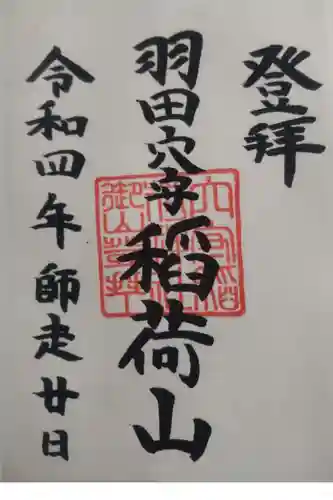 登拜
羽田穴守稲荷山
令和四年師走廿日